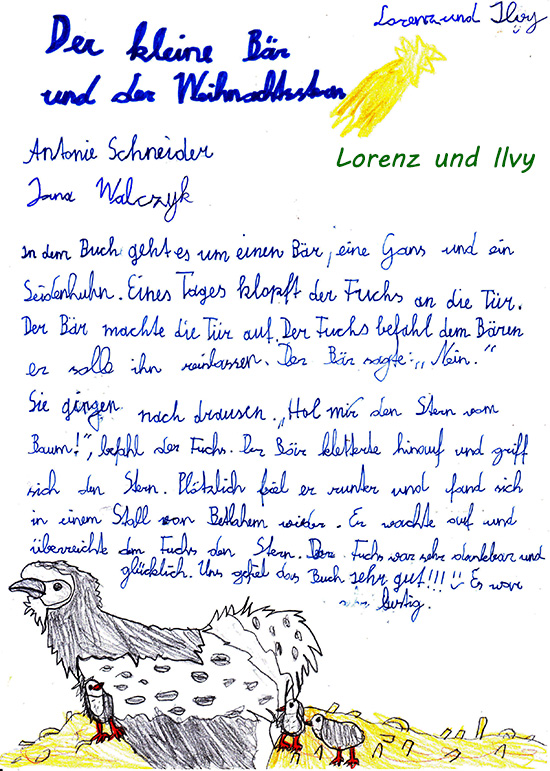 Lorenz und Ilvy
Der kleine Bär
und der Weihnachtsstern
Antonie Schneider
Jana Walczyk
Lorenz und Ilvy
In dem Buch geht es um einen Bär, eine Gans und ein
Seidenhuhn. Eines Tages klopft der Fuchs an die Tür.
Der Bär machte die Tür auf. Der Fuchs befahl dem Bären
er solle ihn reinlassen. Der Bär sagte: „Nein."
Sie gingen nach drausen. „Hol mir den Stern vom
Baum!", befahl der Fuchs. Der Bär kletterte hinauf und griff
sich den Stern. Plötzlich fiel er runter und fand sich
in einem Stall von Betlahem wieder. Er wachte auf und
überreichte dem Fuchs den Stern. Der Fuchs war sehr dankbar und
glücklich. Uns gefiel das Buch sehr gut!!! Es war
lustig.